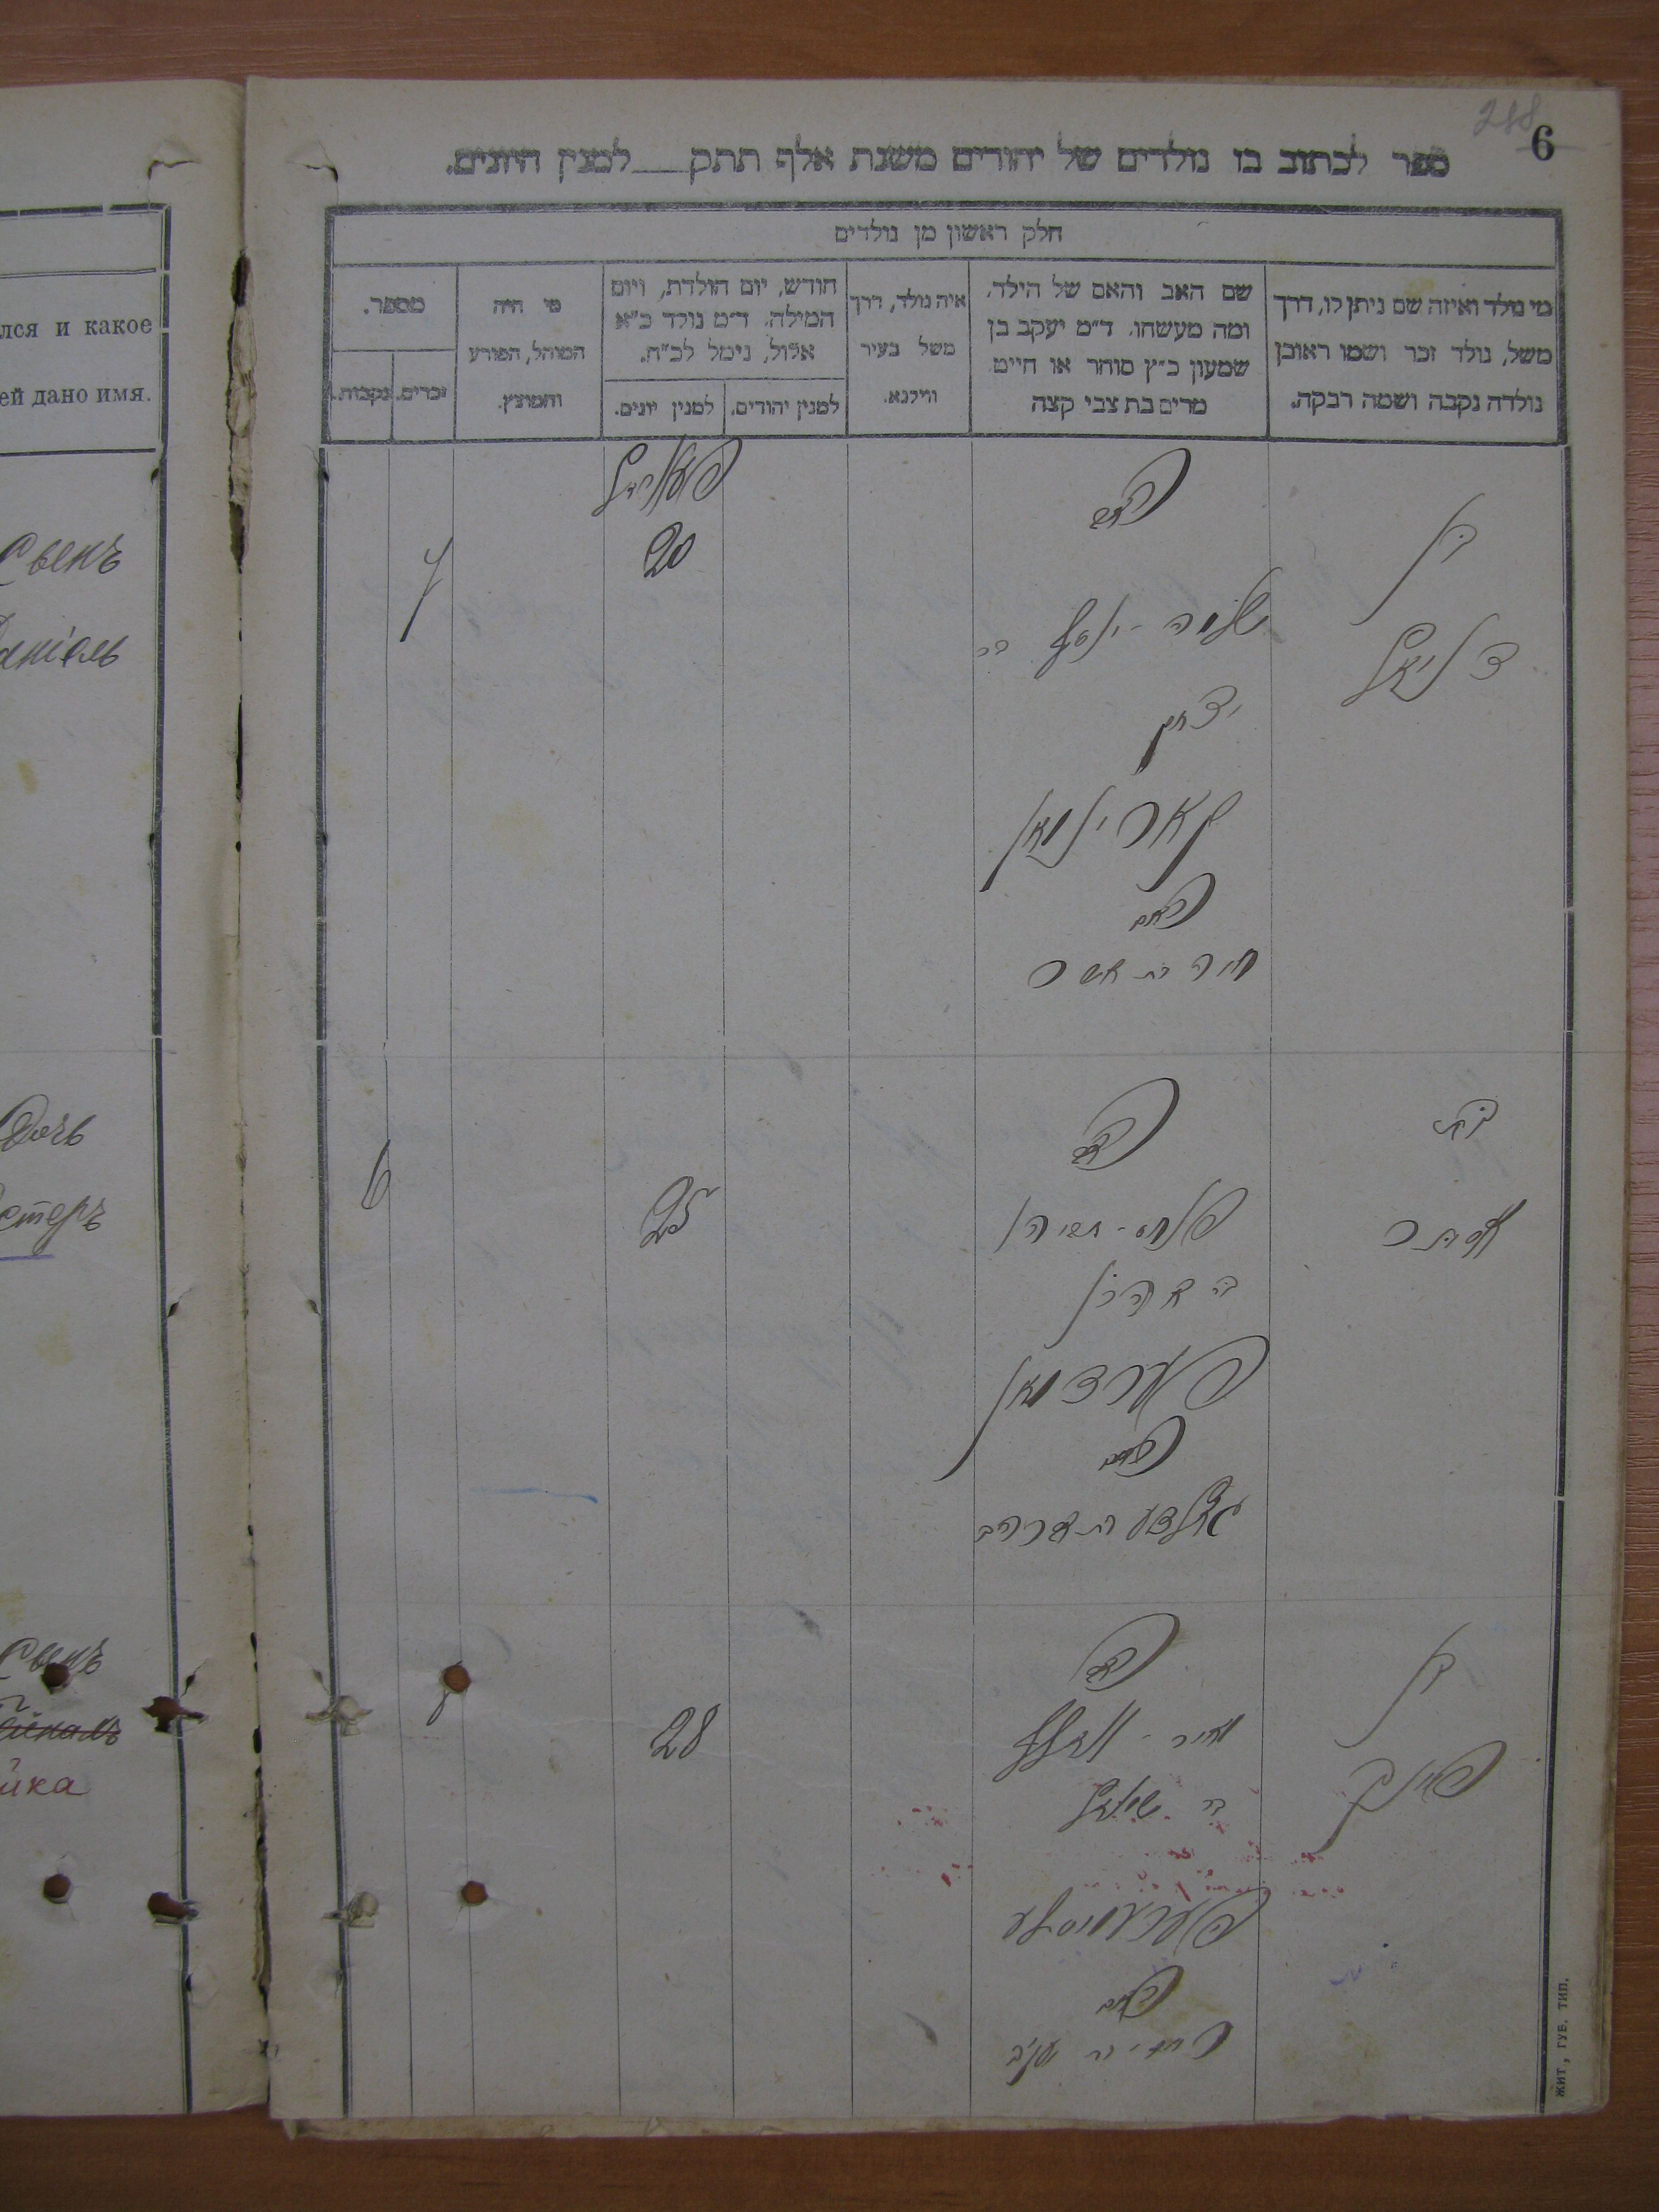 288
6
ספר לכתוב בו נולדים של יהודים משנת אלף תתק___למנין היונים.
חלק ראשון מן נולדים
מי נולד ואיזה שם ניתן לו, דרך
משל, נולד זכר ושמו ראובן
נולדה נקבה ושמה רבקה.
שם האב והאם של הילד,
ומה מעשהו. ד"מ יעקב בן
שמעון כ"ץ סוחר או חייט
מרים בת צבי קצה
איה נולד, דרך
משל בעיר
ווילנא.
חודש, יום הולדת, ויום
המילה. ד"מ נולד כ"א
אלול, נימל לכ"ח.
למנין יהודים.
למנין יונים.
מי היה
המוהל, הפורע
והמוצץ.
מספר.
זכרים.
נקבות.
בן
דניאל
האב
שלמה - יוסף בר
יצחק
האם
חיה בת אשר
20
7
בת
אסתר
האב
ב אהרן
האם
בת אברהם
25
6
בן
האב
מאיר - וועלוול
בר שמואל
האם
28
8
лся и какое
ей дано имя.
Сынъ
Даніель
Дочь
Эстеръ
Сынъ
йка
ЖИТ, ГУБ. ТИП.